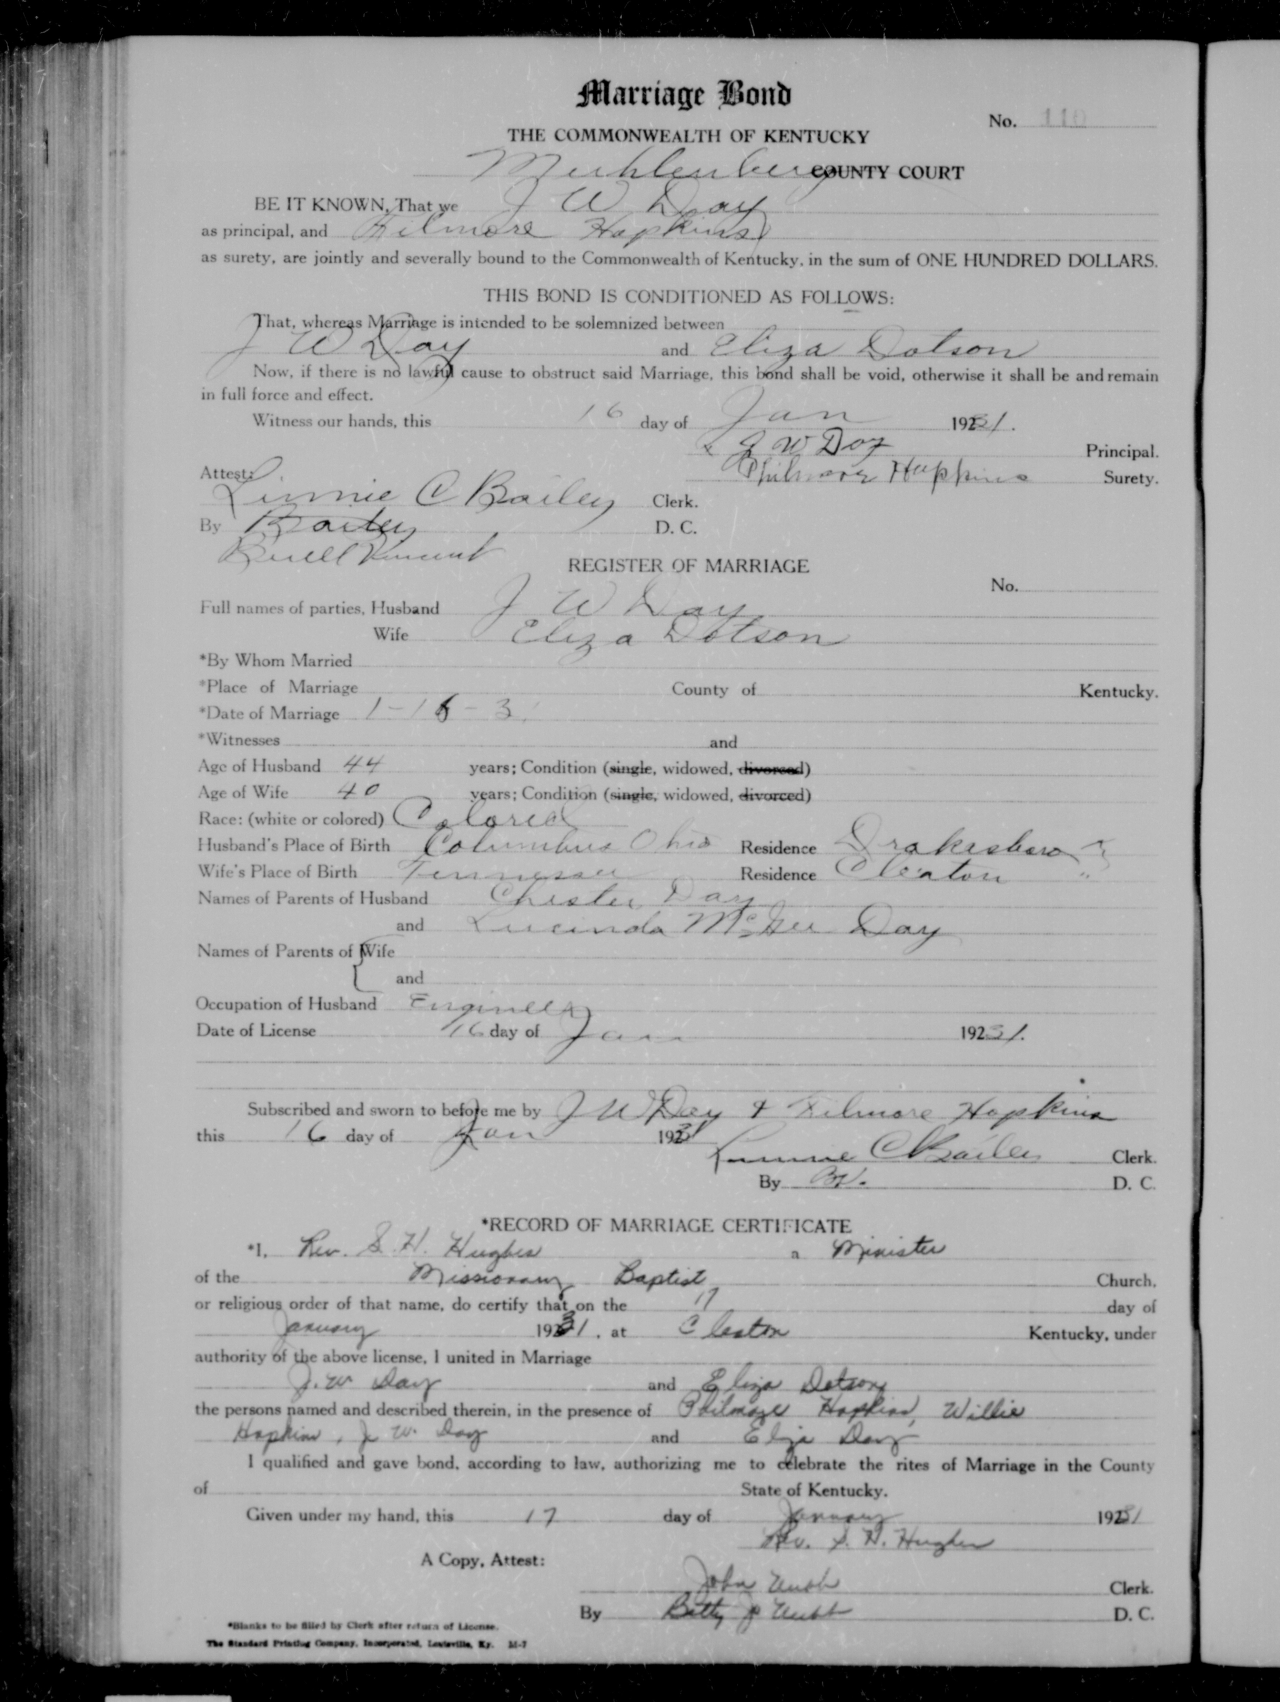 Marriage Bond
No. 110
THE COMMONWEALTH OF KENTUCKY
Muhlenberg COUNTY COURT
BE IT KNOWN, That we J W Day
as principal, and Filmore Hopkins
as surety, are jointly and severally bound to the Commonwealth of Kentucky, in the sum of ONE HUNDRED DOLLARS.
THIS BOND IS CONDITIONED AS FOLLOWS:
That, whereas Marriage is intended to be solemnized between
J W Day and Eliza Dotson
Now, if there is no lawful cause to obstruct said Marriage, this bond shall be void, otherwise it shall be and remain
in full force and effect.
Witness our hands, this 16 day of Jan 1931.
J W Day Principal.
Philmore Hopkins Surety.
Attest:
Linnie C Bailey Clerk.
By Bailey D. C.
Burell Vincent
REGISTER OF MARRIAGE
No.
Full names of parties, Husband J W Day
Wife Eliza Dotson
*By Whom Married
*Place of Marriage County of Kentucky.
*Date of Marriage 1-16-31
*Witnesses and
Age of Husband 44 years; Condition (single, widowed, divorced)
Age of Wife 40 years; Condition (single, widowed, divorced)
Race: (white or colored) Colored
Husband's Place of Birth Columbus Ohio Residence Drakesboro Ky
Wife's Place of Birth Tennessee Residence Cleaton "
Names of Parents of Husband Chester Day
and Lucinda McGee Day
Names of Parents of Wife
and
Occupation of Husband Engineer
Date of License 16 day of Jan 1931.
Subscribed and sworn to before me by J W Day & Filmore Hopkins
this 16 day of Jan 1931
Linnie C Bailey Clerk.
By BV. D. C.
*RECORD OF MARRIAGE CERTIFICATE
*I, Rev. S. H. Hughes a Minister
of the Missionary Baptist Church,
or religious order of that name, do certify that on the 17 day of
January 1931, at Cleaton Kentucky, under
authority of the above license, I united in Marriage
J. W Day and Eliza Dotson
the persons named and described therein, in the presence of Philmore Hopkins, Willie
Hopkins, J. W. Day and Eliza Day
I qualified and gave bond, according to law, authorizing me to celebrate the rites of Marriage in the County
of State of Kentucky.
Given under my hand, this 17 day of January 1931
Rev. S. H. Hughes
A Copy, Attest:
John Clerk.
By Betty D. C.
*Blanks to be filled by Clerk after return of License.
The Standard Printing Company, Incorporated, Louisville, Ky. M-7